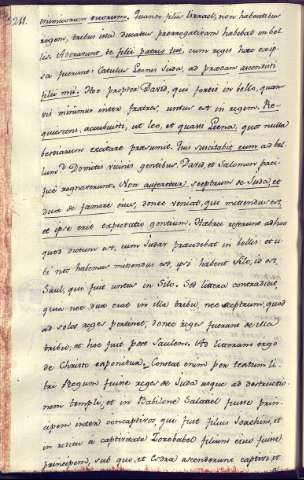 211. inimicorum tuorum. Quando filii Israel, non habentibus
regem, tribus ista ducatus prorogativam habebat in bel-
lis. Adorabunt te filii patris tui, cum reges huic exip-
sa fuerunt. Catulus Leonis Juda, ad praedam ascendisti
fili mi. Hoc propter David, qui fortis in bello, quam-
vis minimus inter fratres, unctus est in regem. Re-
quiescens accubuisti, ut leo, et quasi Leena, quos nulla
bestiarum excitare praesumit. Quis suscitabit eum ad bel-
lum? Domitis vicinis gentibus. David, et Salomon paci-
fice regnaverunt. Non auferetur sceptrum de Juda, et
dux de femore eius, donec veniat, qui mittendus est
et ipse erit expectatio gentium. Hebraei referunt ad hoc
quod dictum est, cum Judas praecedebat in bellis. et u-
bi nos habemus mittendus est, ipsi habent Silo, id est
Saul, qui fuit unctus in Silo. Sed littera contradicit,
quia nec dux erat in illa tribu, nec sceptrum, quod
ad solos reges pertinet, donec reges fuerunt de illa
tribu, et hoc fuit post Saulem. Ad litteram ergo
de Christo exponitur. Constat enim per textum li-
bri Regum fuisse reges de Juda usque ad destructio-
nem templi, et in Babilone Salatiel fuisse prin-
cipem inter concaptivos, qui fuit filius Joachim, et
in reditu a captivitate Zorobabel filium eius fuisse
principem, sub quo, et Esdra ascenderunt captivi, et